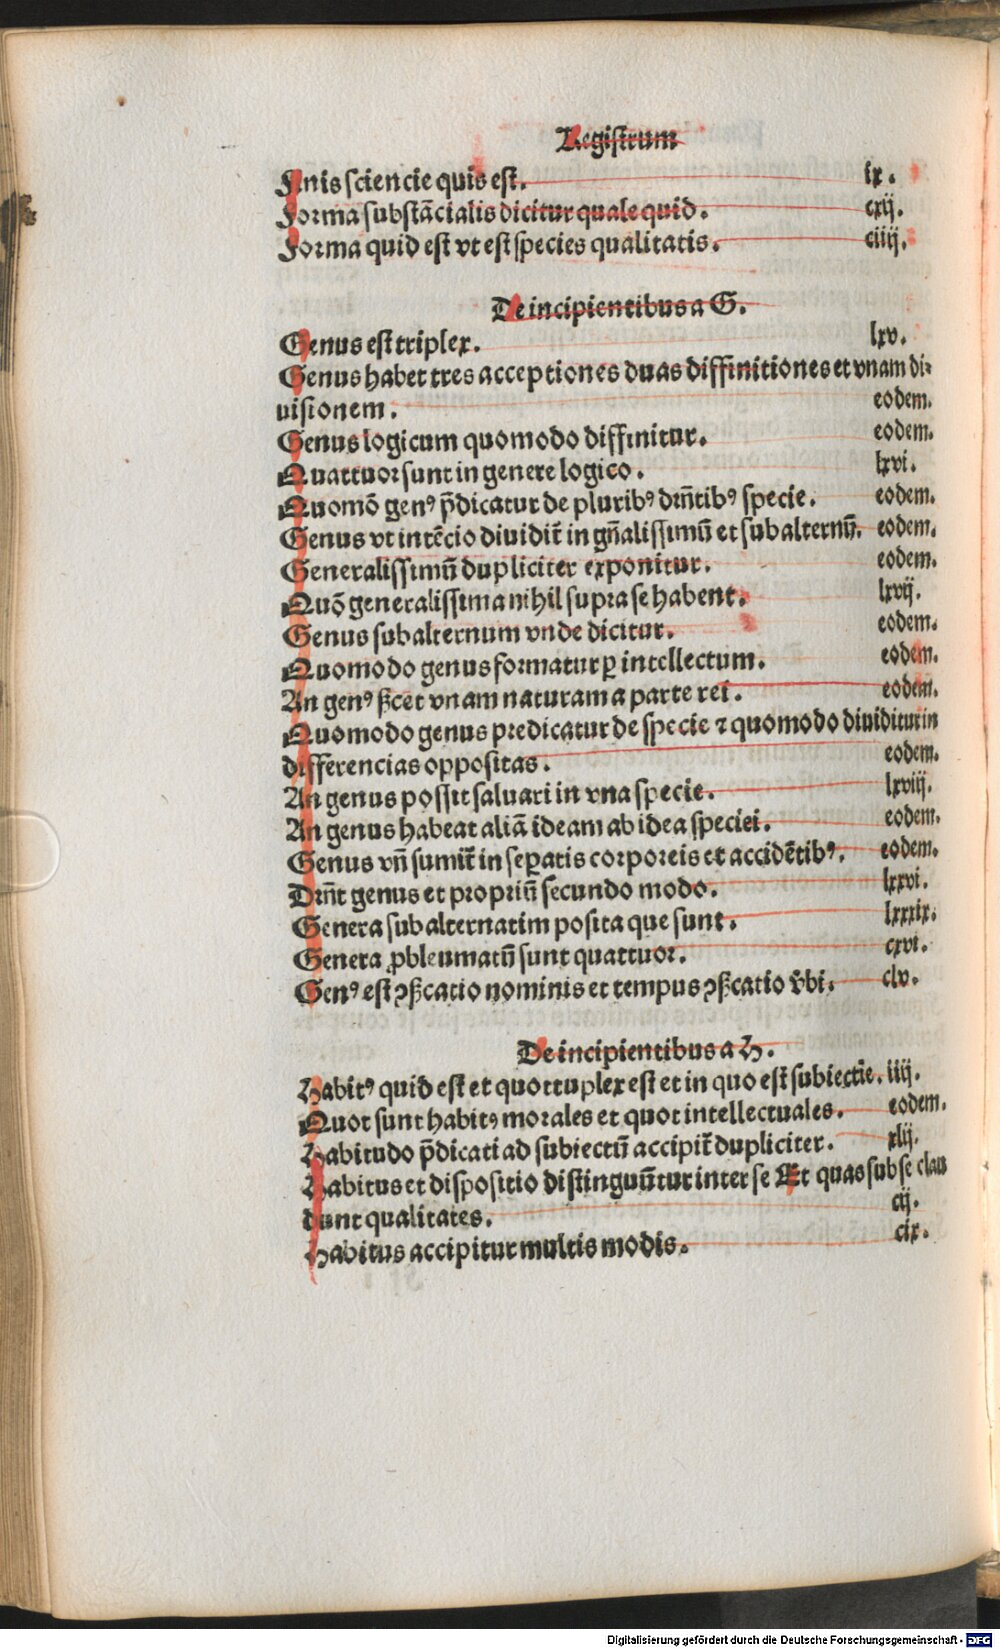 Registrum
Finis sciencie quis est. ix.
Forma substācialis dicitur quale quid. cxij.
Forma quid est vt est species qualitatis. ciiij.
De incipientibus a G.
Genus est triplex. lxv.
Genus habet tres acceptiones duas diffinitiones et vnam di-
uisionem. eodem.
Genus logicum quomodo diffinitur. eodem.
Quattuor sunt in genere logico. lxvi.
Quomō genꝰ p̄dicatur de pluribꝰ drn̄tibꝰ specie. eodem.
Genus vt intēcio diuidit̄ in gn̄alissimū et subalternū. eodem.
Generalissimū dupliciter exponitur. eodem.
Quō generalissima nihil supra se habent. lxvij.
Genus subalternum vnde dicitur. eodem.
Quomodo genus formatur ꝑ intellectum. eodem.
An genꝰ ßcet vnam naturam a parte rei. eodem.
Quomodo genus predicatur de specie ⁊ quomodo diuiditur in
differencias oppositas. eodem.
An genus possit saluari in vna specie. lxviij.
An genus habeat aliā ideam ab idea speciei. eodem.
Genus vn̄ sumit̄ in seꝑatis corporeis et accidētibꝰ. eodem.
Drn̄t genus et propriū secundo modo. lxxvi.
Genera subalternatim posita que sunt. lxxxix.
Genera ꝓbleumatū sunt quattuor. cxvi.
Genꝰ est ꝯßcatio nominis et tempus ꝯßcatio v̄bi. clv.
De incipientibus a H.
Habitꝰ quid est et quottuplex est et in quo est subiectīe. iiij.
Quot sunt habitꝰ morales et quot intellectuales. eodem.
Habitudo p̄dicati ad subiectū accipit̄ dupliciter. xlij.
Habitus et dispositio distinguūtur inter se Et quas sub se clau
dunt qualitates. cij.
Habitus accipitur multis modis. cix.
Digitalisierung gefördert durch die Deutsche Forschungsgemeinschaft - DFG